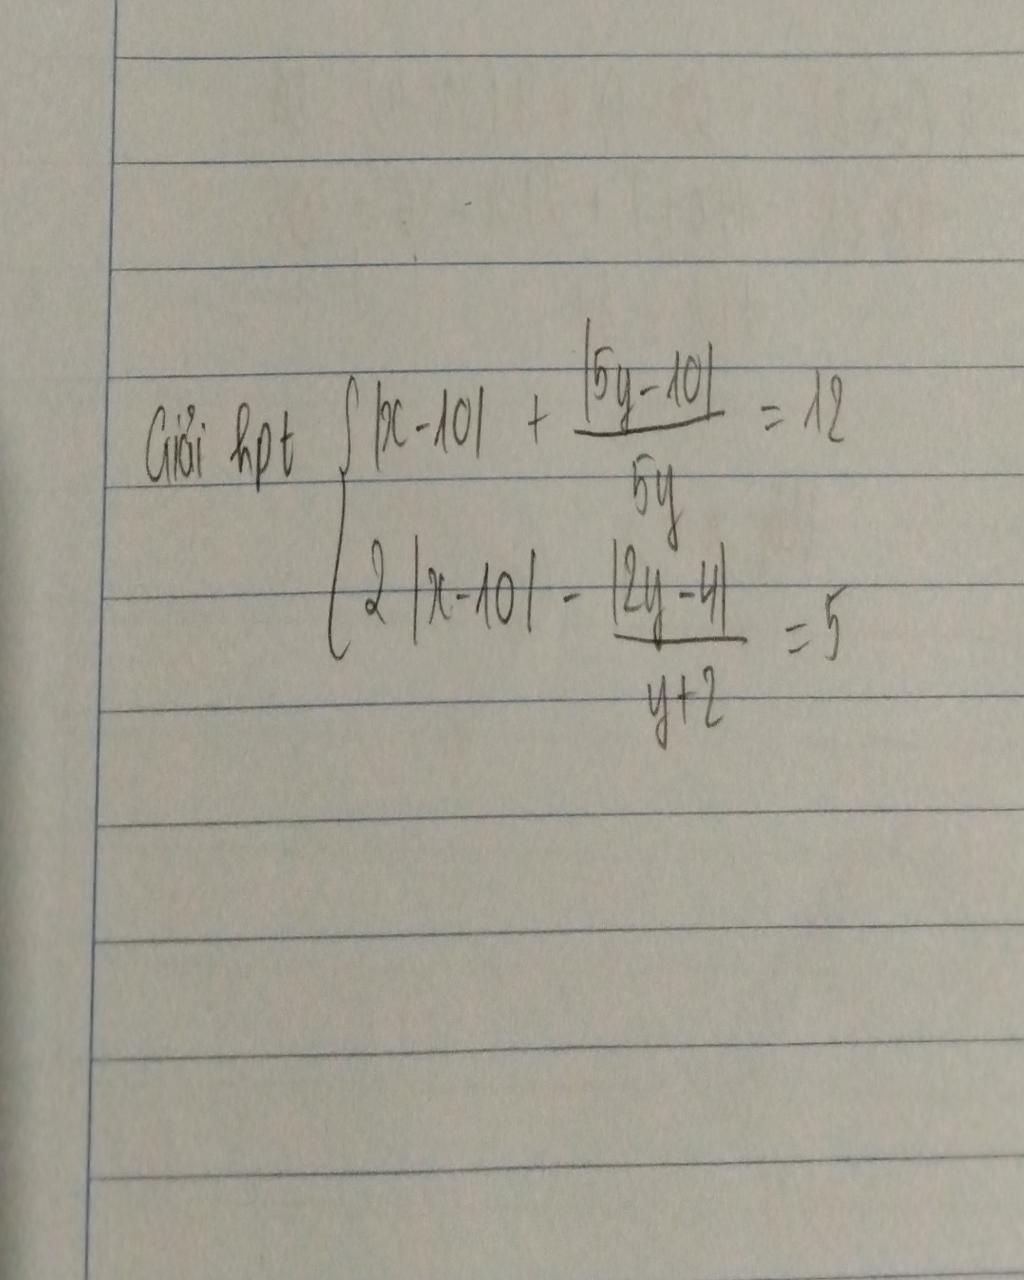 Giải hpt { |x-10| + |5y-10| / 5y = 12
2|x-10| - |2y-4| / y+2 = 5